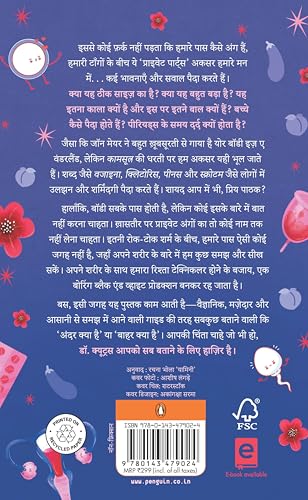 इससे कोई फ़र्क नहीं पड़ता कि हमारे पास कैसे अंग हैं,
हमारी टाँगों के बीच ये ‘प्राइवेट पार्ट्स’ अकसर हमारे मन
में. . . कई भावनाएँ और सवाल पैदा करते हैं।
क्या यह ठीक साइज़ का है? क्या यह बहुत बड़ा है? यह
इतना काला क्यों है और इस पर इतने बाल क्यों हैं? बच्चे
कैसे पैदा होते हैं? पीरियड्स के समय दर्द क्यों होता है?
जैसा कि जॉन मेयर ने बहुत ख़ूबसूरती से गाया है योर बॉडी इज़ ए
वंडरलैंड, लेकिन कामसूत्र की धरती पर हम अकसर यही भूल जाते
हैं। शब्द जैसे वजाइना, क्लिटोरिस, पीनस और स्क्रोटम जैसे लोगों में
उलझन और शर्मिंदगी पैदा करते हैं। शायद आप में भी, प्रिय पाठक?
हालाँकि, बॉडी सबके पास होती है, लेकिन कोई इसके बारे में बात
नहीं करना चाहता। ख़ासतौर पर प्राइवेट अंगों का तो कोई नाम तक
नहीं लेना चाहता। इतनी रोक-टोक शर्म के बीच, हमारे पास ऐसी कोई
जगह नहीं है, जहाँ अपने शरीर के बारे में हम कुछ समझ और सीख
सकें। अपने शरीर के साथ हमारा रिश्ता टेक्निकलर होने के बजाय, एक
बोरिंग ब्लैक ऐंड व्हाइट प्रोडक्शन बनकर रह जाता है।
बस, इसी जगह यह पुस्तक काम आती है—वैज्ञानिक, मज़ेदार और
आसानी से समझ में आने वाली गाइड की तरह सबकुछ बताने वाली कि
‘अंदर क्या है’ या ‘बाहर क्या है’। आपकी चिंता चाहे जो भी हो,
डॉ. क्यूट्रस आपको सब बताने के लिए हाज़िर है।
अनुवाद : रचना भोला ‘यामिनी’
कवर फोटो : आशीष लंगड़े
कवर चित्र: शटरस्टॉक
कवर डिज़ाइन: अकांगक्षा सरमा
PRINTED ON
RECYCLED PAPER
नॉन-फ़िक्शन
ISBN 978-0-143-47902-4
9 780143 479024
MRP ₹299 (incl. of all taxes)
www.penguin.co.in
FSC
e
E-book available